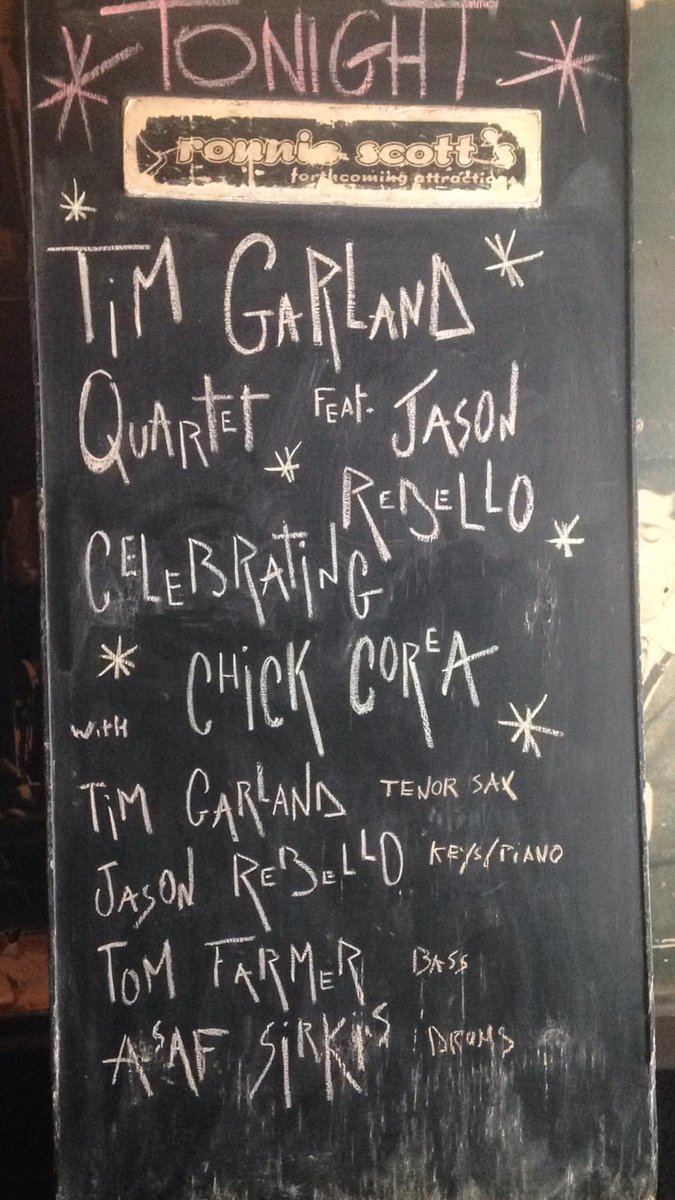 TONIGHT
ronnie scott's
forthcoming attractions
TiM GARLAND
QUARTET FEAT. JASON
REBELLO
CELEBRATiNG
CHiCK COREA
WiTH
TiM GARLAND TENOR SAX
JASON REBELLO KEYS/PIANO
TOM FARMER BASS
ASAF SiRKiS DRUMS